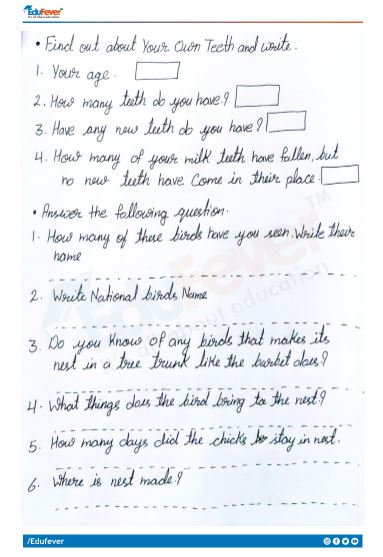 EduFever
It's all about education
• Find out about Your Own Teeth and write.
1. Your age.
2. How many teeth do you have?
3. Have any new teeth do you have?
4. How many of your milk teeth have fallen, but
no new teeth have Come in their place.
• Answer the following question.
1. How many of these birds have you seen. Write their
name
2. Write National birds Name
3. Do you know of any birds that makes its
nest in a tree trunk like the barbet does?
4. What things does the bird bring to the nest?
5. How many days did the chicks to stay in nest.
6. Where is nest made?
EduFever TM
all about education
/Edufever